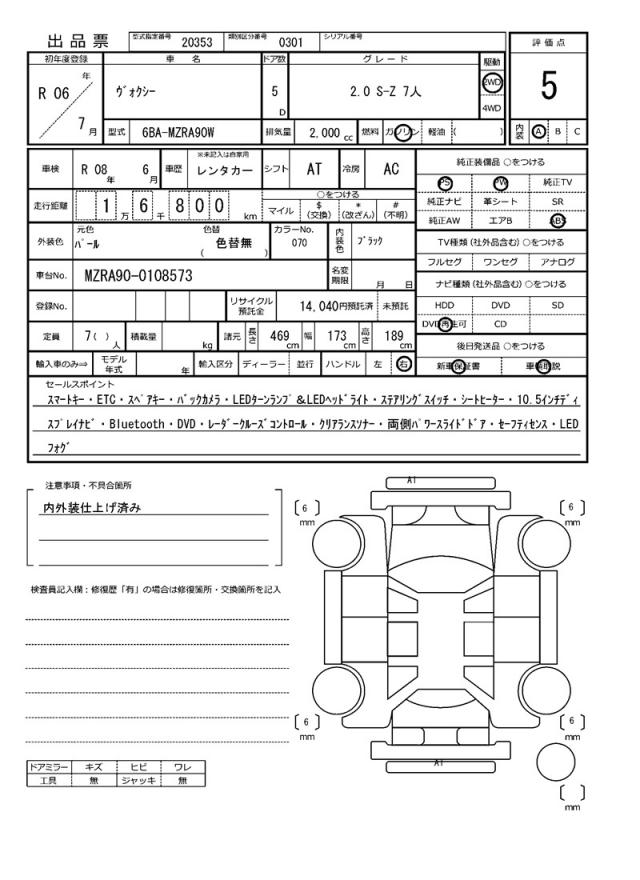 出品票 型式指定番号 20353 類別区分番号 0301 シリアル番号
評価点
初年度登録 車名 ドア数 グレード 駆動
R 06 年 7 月 ヴォクシー 5 D 2.0 S-Z 7人 2WD 4WD
5
型式 6BA-MZRA90W 排気量 2,000 cc 燃料 ガソリン 軽油 ( )
内装 A B C
車検 R 08 年 6 月 車歴 ※未記入は自家用 レンタカー シフト AT 冷房 AC
純正装備品 ○をつける
PS PW 純正TV
走行距離 1 万 6 千 8 0 0 km ○をつける マイル $ (交換) * (改ざん) # (不明)
純正ナビ 革シート SR
純正AW エアB ABS
外装色 元色 パール 色替 色替無 ( ) カラーNo. 070 内装色 ブラック
TV種類 (社外品含む) ○をつける
フルセグ ワンセグ アナログ
車台No. MZRA90-0108573 名変期限 月 日
ナビ種類 (社外品含む) ○をつける
登録No. リサイクル預託金 14,040円預託済 未預託
HDD DVD SD
DVD再生可 CD
定員 7( ) 人 積載量 kg 諸元 長さ 469 cm 幅 173 cm 高さ 189 cm
後日発送品 ○をつける
輸入車のみ⇒ モデル年式 年 輸入区分 ディーラー 並行 ハンドル 左 右
新車保証書 車輌取説
セールスポイント
スマートキー・ETC・スペアキー・バックカメラ・LEDターンランプ&LEDヘッドライト・ステアリングスイッチ・シートヒーター・10.5インチディ
スプレイナビ・Bluetooth・DVD・レーダークルーズコントロール・クリアランスソナー・両側パワースライドドア・セーフティセンス・LED
フォグ
注意事項・不具合箇所
内外装仕上げ済み
A1
6 mm
6 mm
検査員記入欄：修復歴「有」の場合は修復箇所・交換箇所を記入
6 mm
6 mm
A1
mm
ドアミラー キズ ヒビ ワレ
工具 無 ジャッキ 無